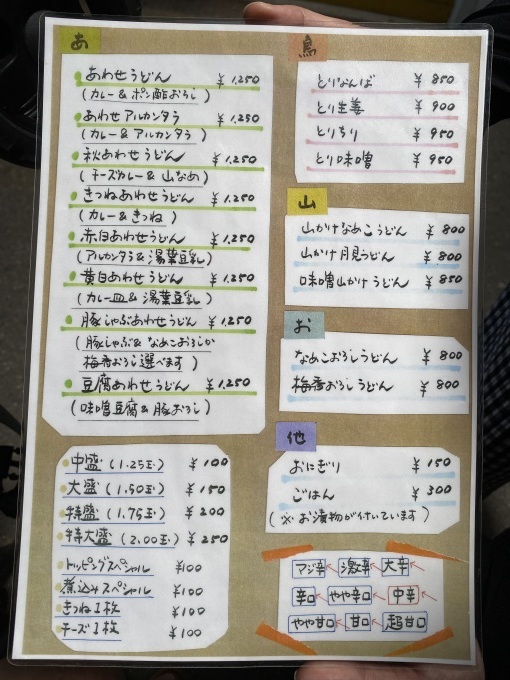 あ
あわせうどん ¥1,250
(カレー&ポン酢おろし)
あわせアルカンタラ ¥1,250
(カレー&アルカンタラ)
秋あわせうどん ¥1,250
(チーズカレー&山なめ)
きつねあわせうどん ¥1,250
(カレー&きつね)
赤白あわせうどん ¥1,250
(アルカンタラ&湯葉豆乳)
黄白あわせうどん ¥1,250
(カレー皿&湯葉豆乳)
豚しゃぶあわせうどん ¥1,250
(豚しゃぶ&なめこおろしか
梅香おろし選べます)
豆腐あわせうどん ¥1,250
(味噌豆腐&豚おろし)
中盛(1.25玉) ¥100
大盛(1.50玉) ¥150
特盛(1.75玉) ¥200
特大盛(2.00玉) ¥250
トッピングスペシャル ¥100
煮込みスペシャル ¥100
きつね1枚 ¥100
チーズ1枚 ¥100
鳥
とりなんば ¥850
とり生姜 ¥900
とりちり ¥950
とり味噌 ¥950
山
山かけなめこうどん ¥800
山かけ月見うどん ¥800
味噌山かけうどん ¥850
お
なめこおろしうどん ¥800
梅香おろしうどん ¥800
他
おにぎり ¥150
ごはん ¥300
(※お漬物が付いています)
マジ辛←激辛←大辛
辛口←やや辛口←中辛
やや甘口←甘口←超甘口